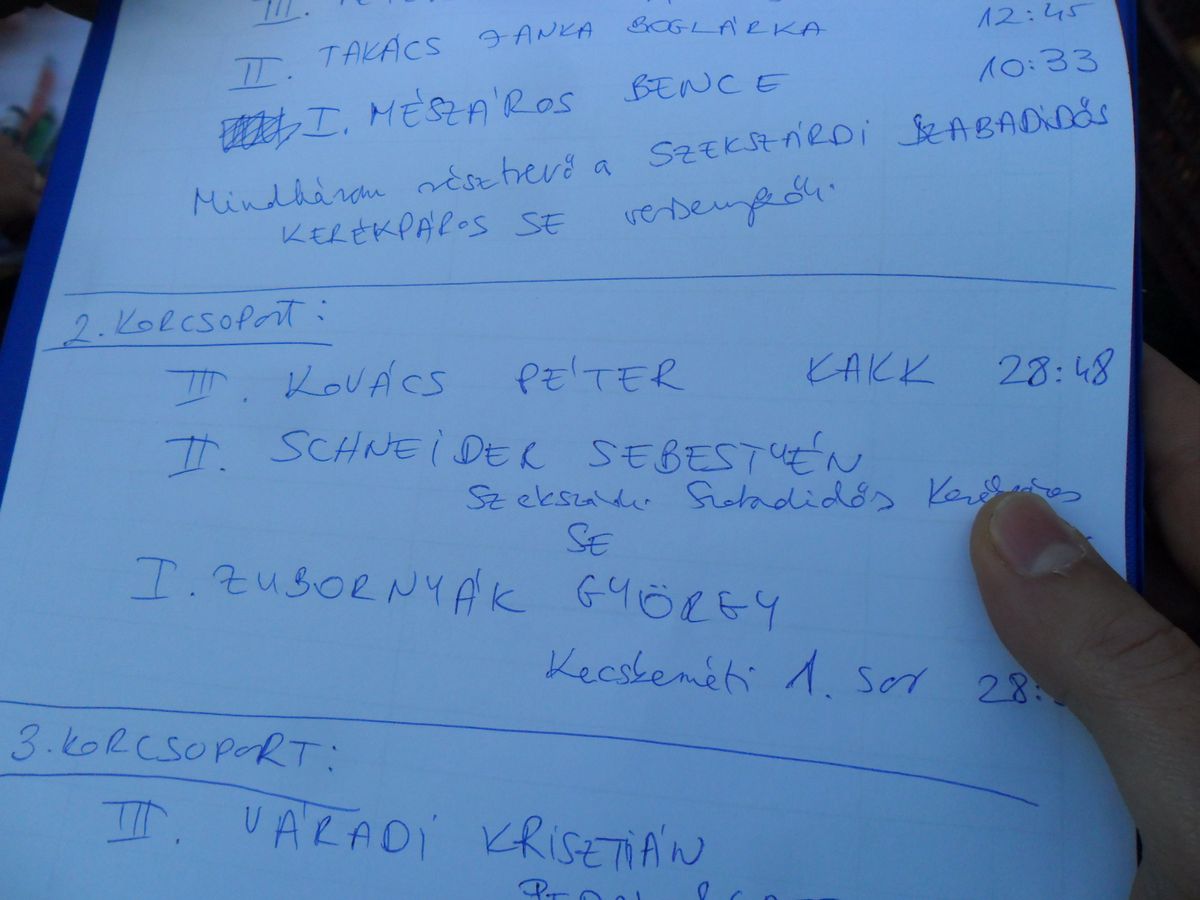 III.
II. TAKÁCS JANKA BOGLÁRKA 12:45
I. MÉSZÁROS BENCE 10:33
Mindhárom résztvevő a SZEKSZÁRDI SZABADIDŐS
KERÉKPÁROS SE versenyzői.
2. KORCSOPORT:
III. KOVÁCS PÉTER KAKK 28:48
II. SCHNEIDER SEBESTYÉN
Szekszárdi Szabadidős
SE
I. ZUBORNYÁK GYÖRGY
Kecskeméti 1. sor 28:
3. KORCSOPORT:
III. VÁRADI KRISZTIÁN